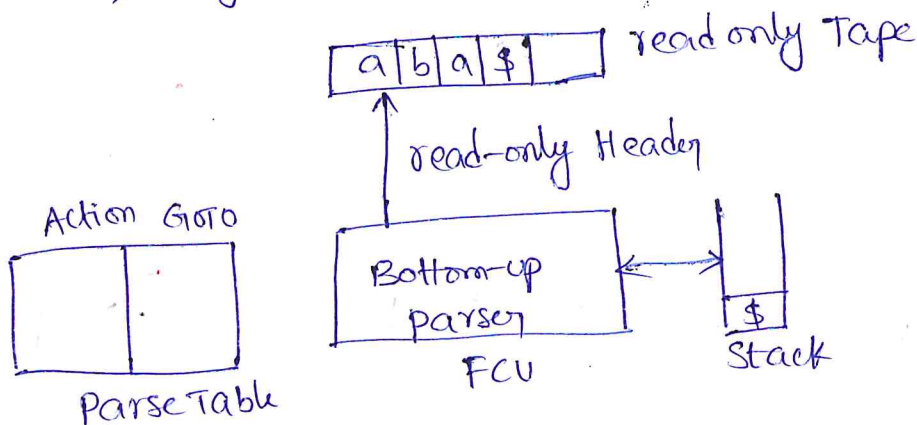 a b a $
read only Tape
read-only Header
Action GOTO
Bottom-up
parser
$
Stack
FCU
Parse Table